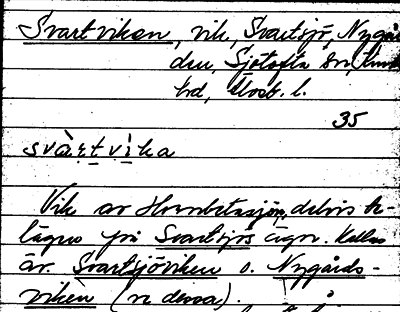 Svartviken, vik, Svartsjö, Nygår
den, Sjötofta sn,
hd, Älvsb. l.
35
svàrtvìka
Vik av Hornbetasjön, delvis be-
lägen på Svartsjös ägor. Kallas
är. Svartsjöviken o. Nygårds-
viken (se dessa).